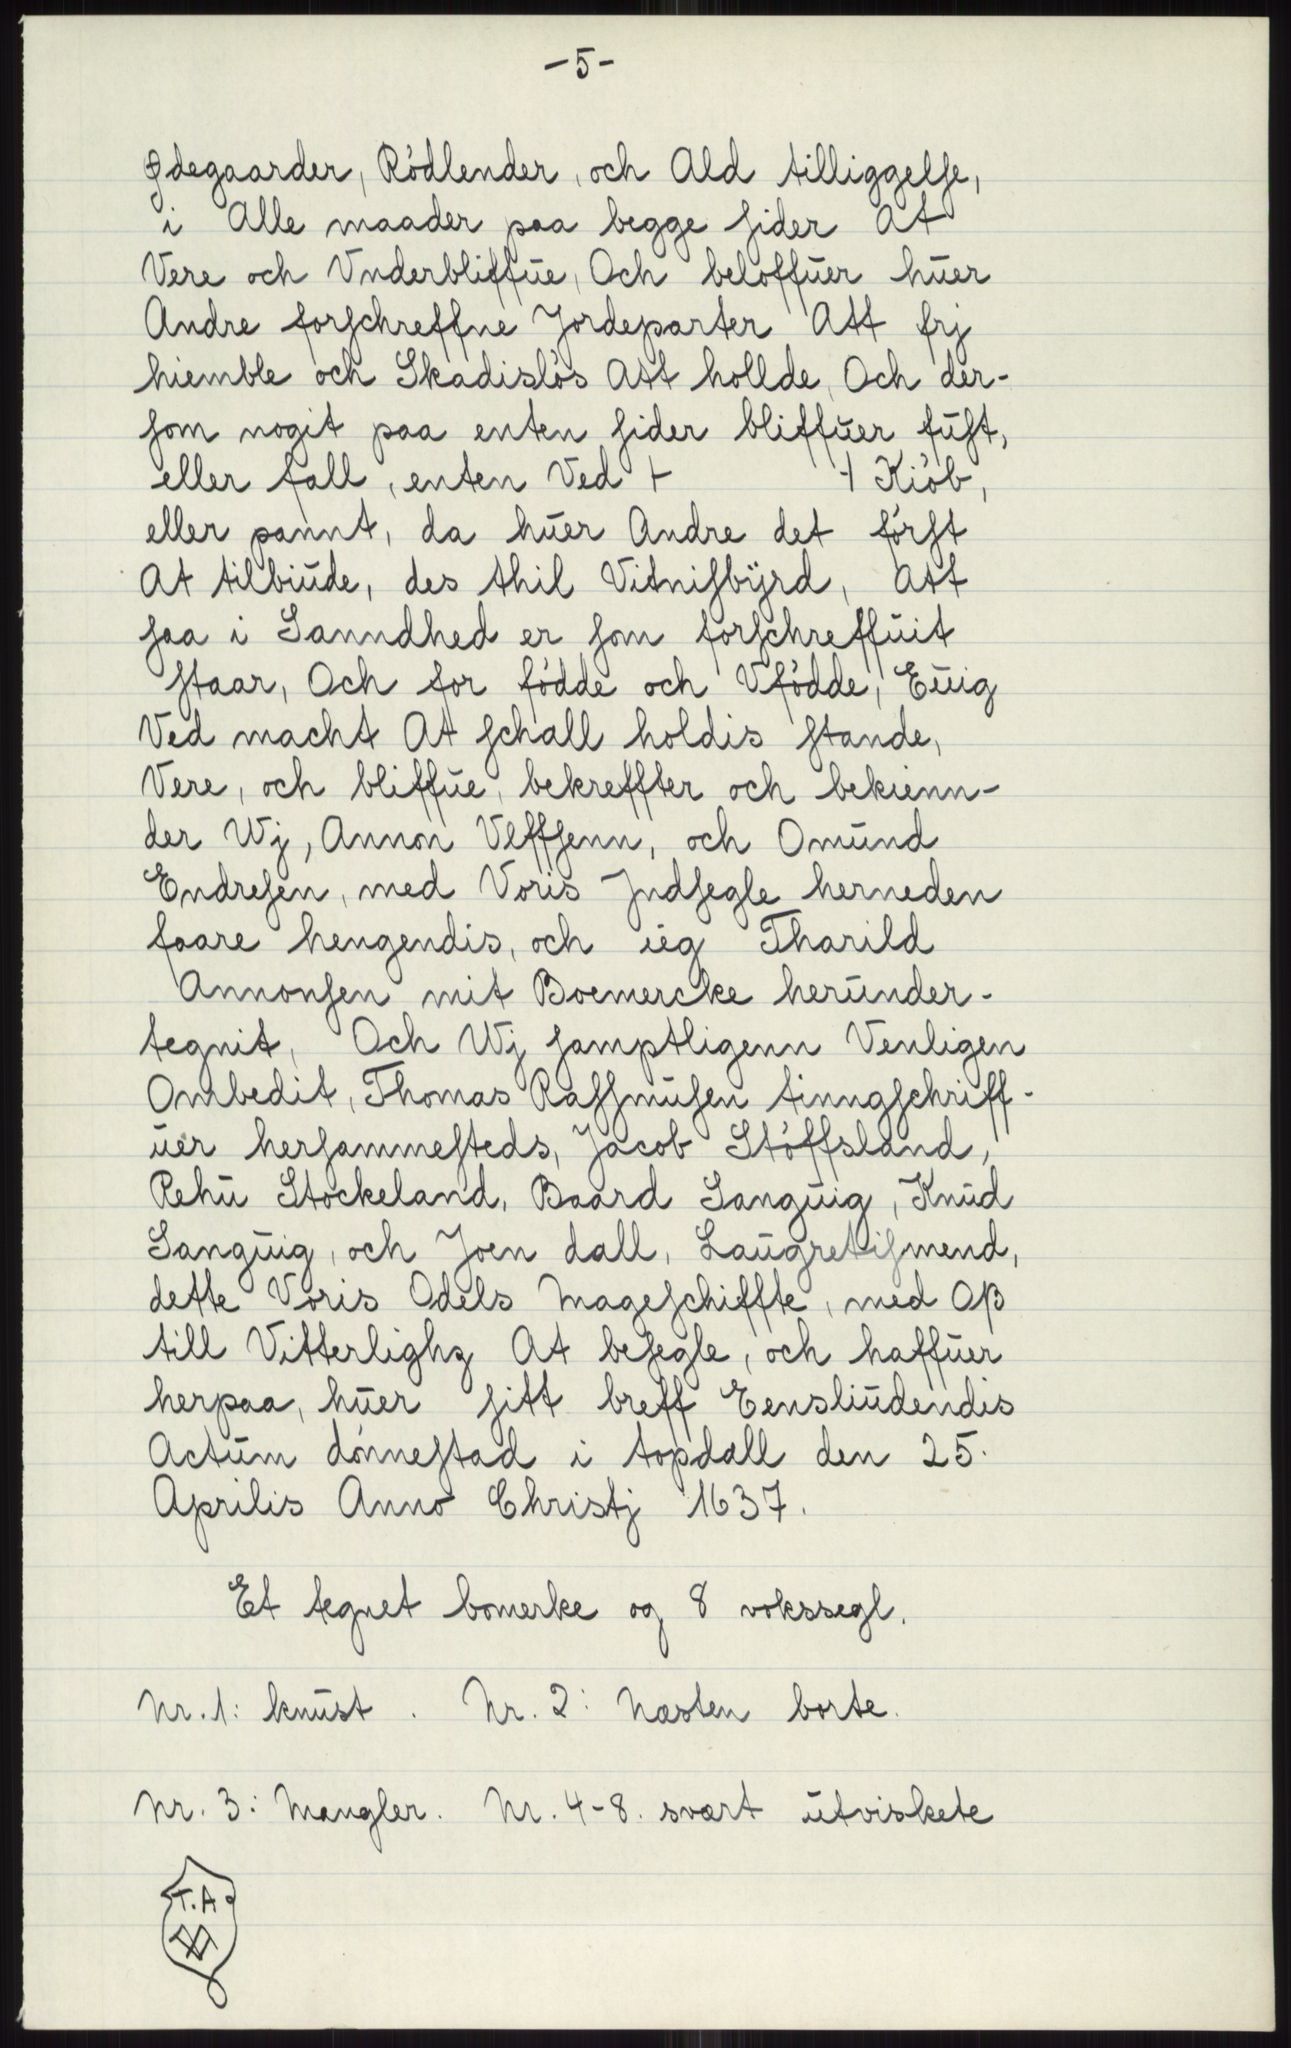 -5-
Ødegaarder, Rödlender, och Ald tilliggelse,
i Alle maader paa begge sider At
Vere och Vnderbliffue, Och beloffuer huer
Andre forschreffne Jordeparter Att frj
hiemble och Skadislös Att hollde, Och der-
som nogit paa enten sider bliffuer fust,
eller fall, enten Ved + + Kiöb,
eller pannt, da huer Andre det först
At tilbiude, des thil Vitnisbÿrd, Att
saa i Sanndhed er som forschreffuit
staar, Och for födde och Vfödde, Euig
Ved macht At schall holdis stande,
Vere, och bliffue, bekreffter och bekienn-
der Wj, Annon Vlffsenn, och Omund
Endresen, med Voris Jndsegle herneden
faare hengendis, och ieg Tharild
Annonsen mit Boemercke herunder-
tegnit, Och Wj samptligenn Venligen
Ombedit, Thomas Rassmusen tinngschriff-
uer hersammesteds, Jacob Stöffsland,
Rehu Stockeland, Baard Sanguig, Knud
Sanguig, och Joen dall, Laugretismend,
dette Voris Odels Mageschiffte, med Oß
till Vitterlighz At besegle, och haffuer
herpaa, huer sitt breff Eensliudendis
Actum dönnestad i topdall den 25.
Aprilis Anno Christj 1637.
Et tegnet bomerke og 8 vokssegl.
Nr. 1: knust. Nr. 2: Næsten borte.
Nr. 3: Mangler. Nr. 4-8. svært utviskete
T. A.